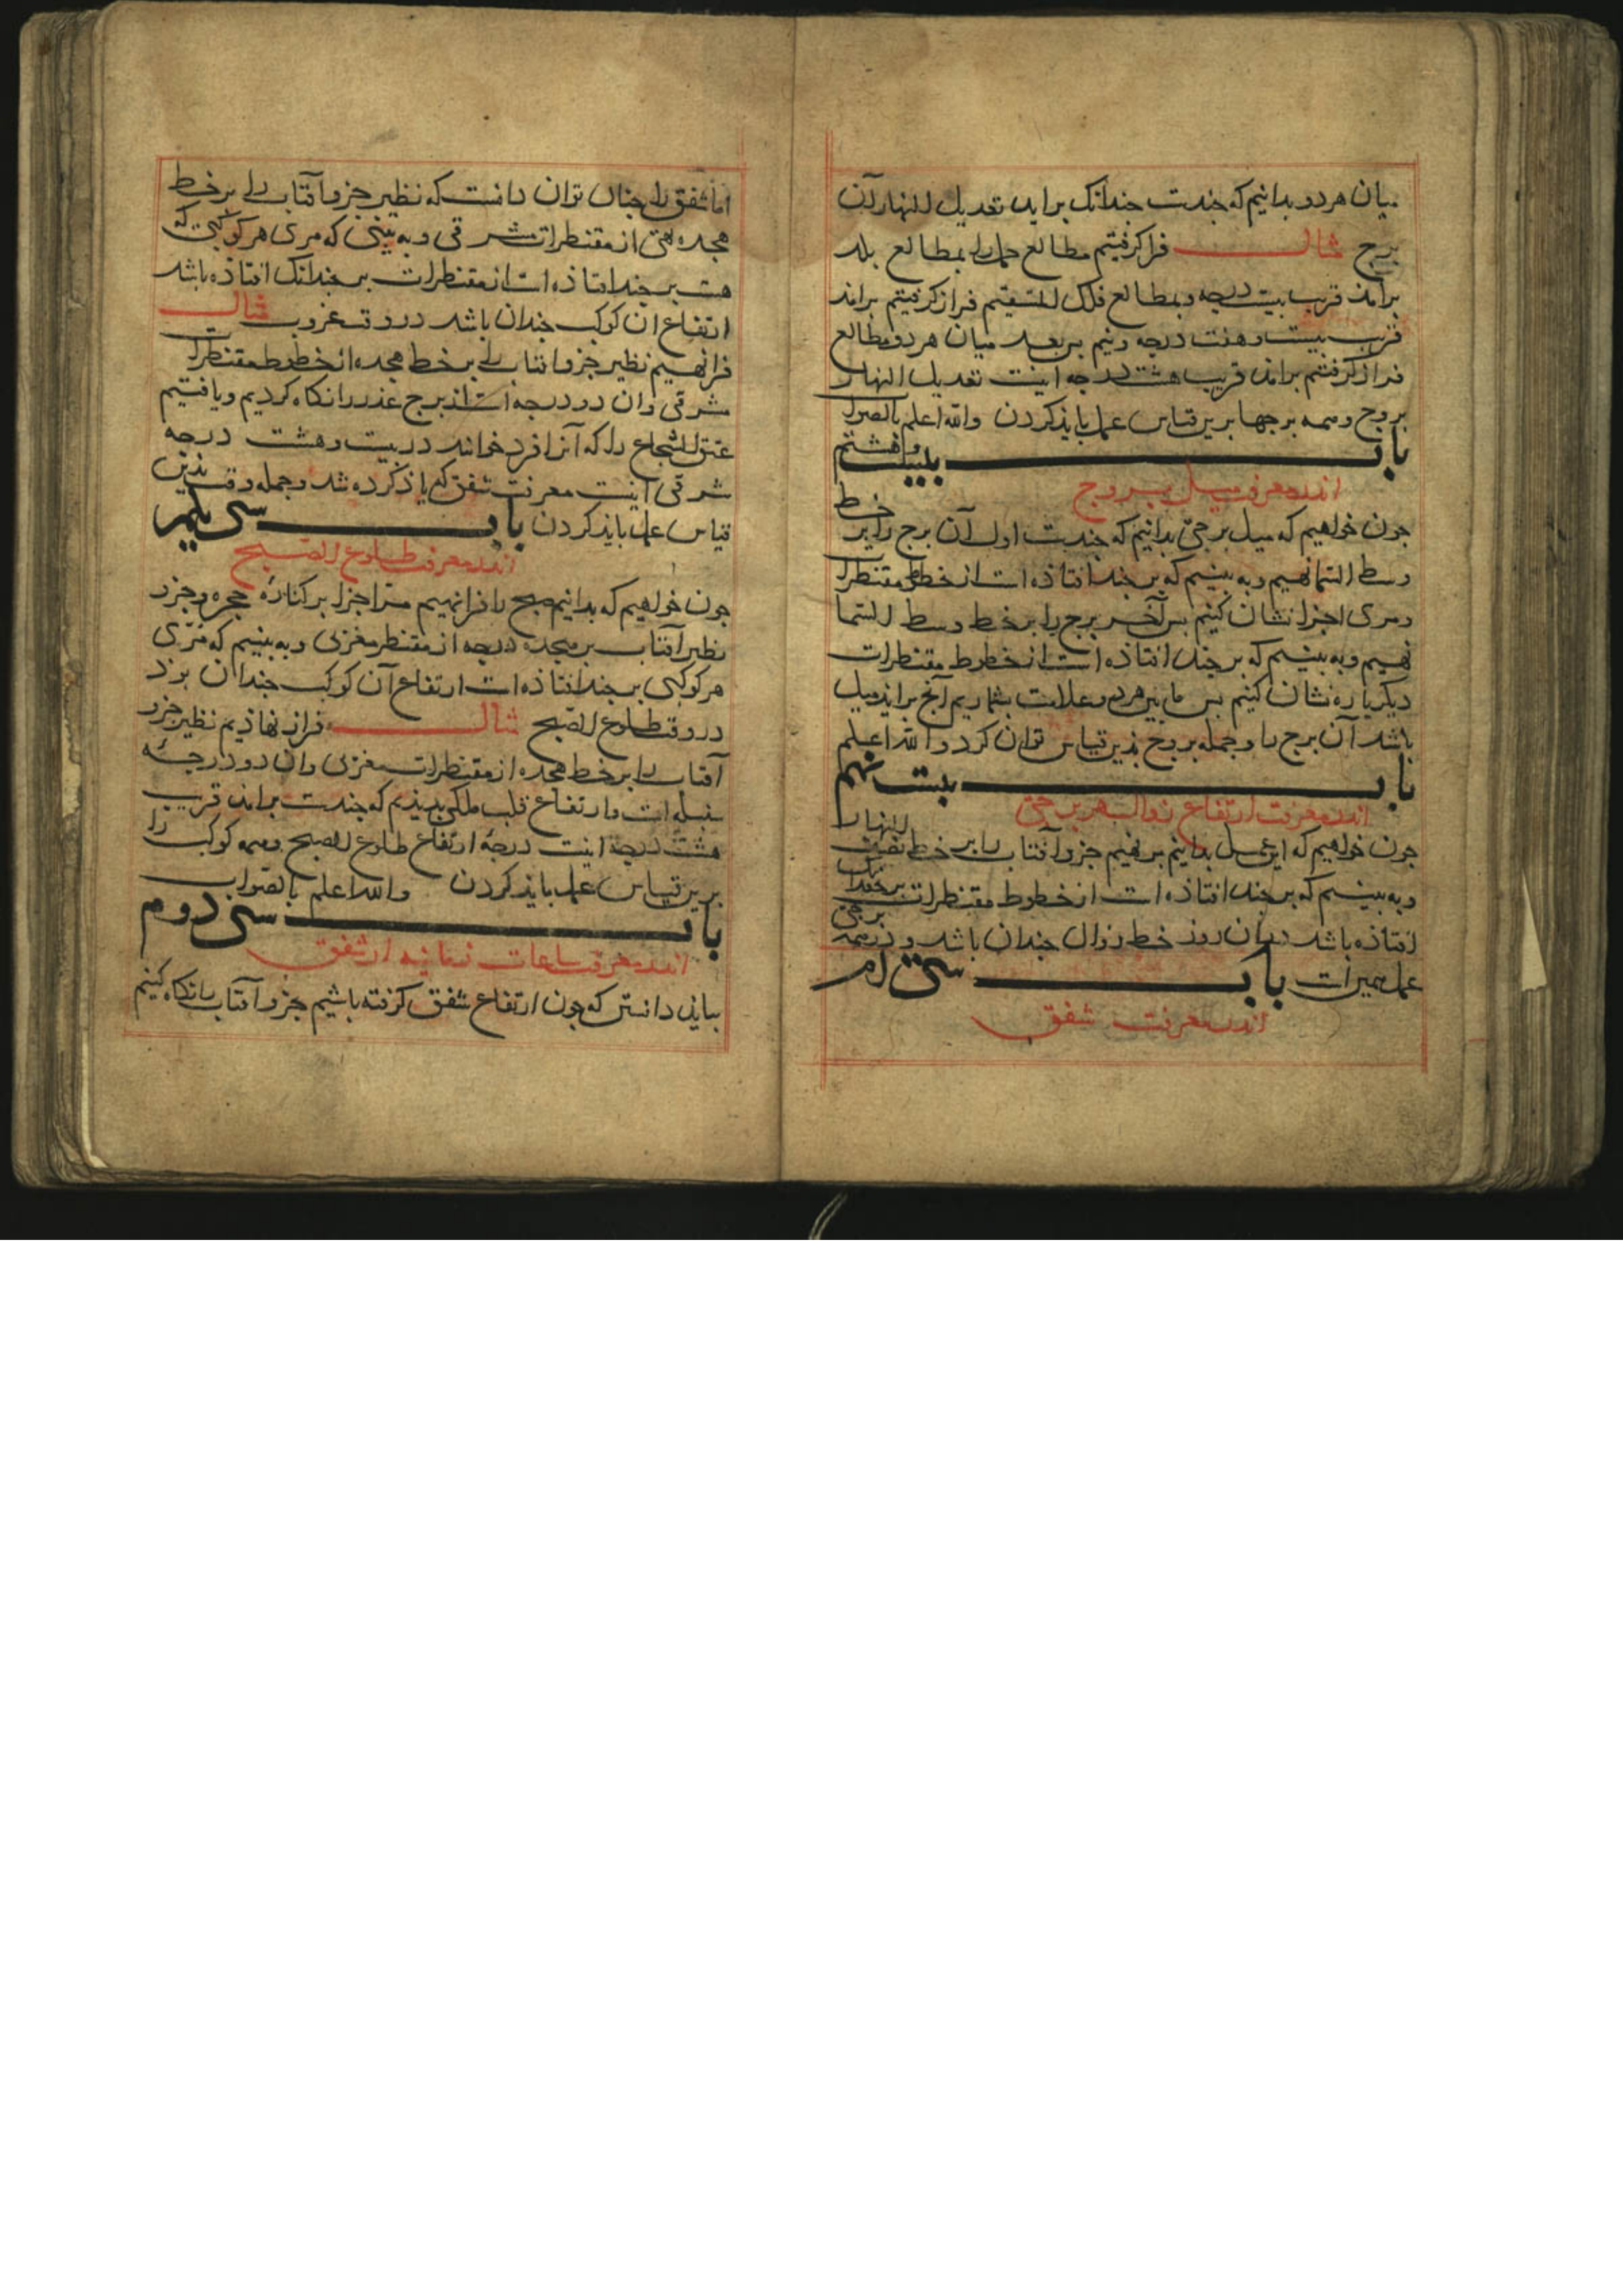 میان هر دو بدانیم که چندست چندانک براید تعدیل النهار آن
برج مثال فراز گرفتیم مطالع حمل را بمطالع بلد
برامذ قریب بیست درجه و بمطالع فلک المستقیم فراز گرفتیم برامذ
قریب بیست و هفت درجه و نیم پس بعد میان هر دو مطالع
فراز گرفتیم برامذ قریب هشت درجه اینست تعدیل النهار
بروج و همه برجها برین قیاس عمل باید کردن والله اعلم بالصواب
باب بیست و هشتم
اندر معرفت میل بروج
جون خواهیم که میل برجی بدانیم که چندست اول آن برج را بر خط
وسط السما نهیم و به بینیم که بر چند افتاذه است از خطوط مقنطرات
و مری اجزا نشان کنیم پس آخر برج را بر خط وسط السما
نهیم و به بینیم که بر چند افتاذه است از خطوط مقنطرات
دیگر باره نشان کنیم پس ما بین هر دو علامت بشماریم آنج برایذ میل
باشد آن برج را و جمله بروج بذین قیاس توان کرد والله اعلم
باب بیست نهم
اندر معرفت ارتفاع زوال هر برجی
جون خواهیم که این عمل بدانیم بر نهیم جزو آفتاب را بر خط نصف النهار
و به بینیم که بر چند افتاذه است از خطوط مقنطرات بر چندانک
افتاذه باشد دران روز خط زوال چندان باشد و در همه برجی
عمل همین است باب سی ام
اندر معرفت شفق
اما شفق را چنان توان دانست که نظیر جزو آفتاب را بر خط
هجده نهی از مقنطرات مشرقی و به بینی که مری هر کوکبی که
هست بر چند افتاذه است از مقنطرات بر چندانک افتاذه باشد
ارتفاع ان کوکب چندان باشد در وقت غروب مثال
فراز نهیم نظیر جزو افتاب را بر خط هجده از خطوط مقنطرات
مشرقی وان دو درجه است از برج نگاه کردیم و یافتیم
عنق الشجاع را که آنرا فرد خوانند در بیست و هشت درجه
شرقی اینست معرفت شفق که یاذ کرده شد و جمله وقت بذین
قیاس عمل باید کردن باب سی یکم
اندر معرفت طلوع الصبح
جون خواهیم که بدانیم صبح را فراز نهیم مر اجزا بر کنارهٔ حجره و جزو
نظیر آفتاب بر هجده درجه از مقنطر مغربی و به بینیم که مری
هر کوکبی بر چند افتاذه است ارتفاع آن کوکب چندان بوذ
در وقت طلوع الصبح مثال فراز نهاذیم نظیر جزو
آفتاب را بر خط هجده از مقنطرات مغربی وان دو درجه
سنبله است و ارتفاع قلب ملکی بدیذیم که چندست برامذ قریب
هشت درجه اینست درجهٔ ارتفاع طلوع الصبح و همه کوکب را
برین قیاس عمل باید کردن والله اعلم بالصواب
باب سی دوم
اندر معرفت ساعات زمانیه از شفق
بباید دانستن که جون ارتفاع شفق گرفته باشیم جزو آفتاب را نگاه کنیم